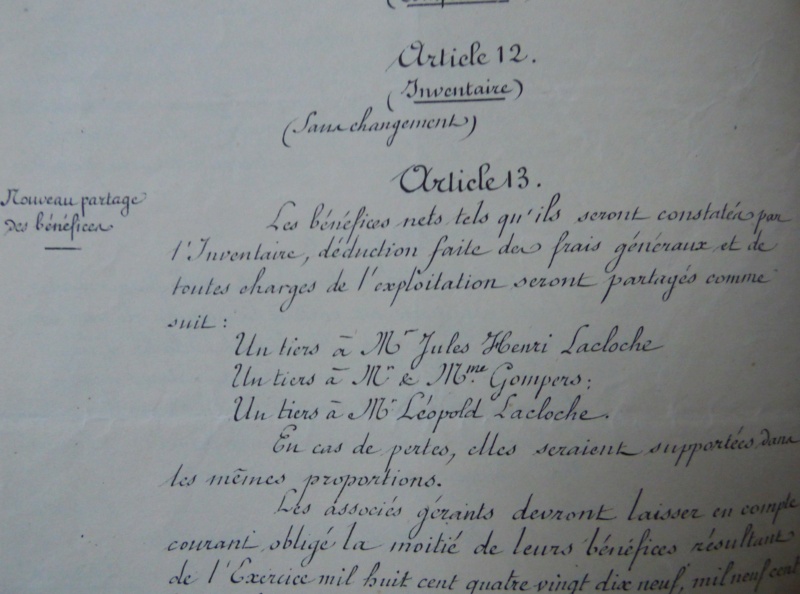 Article 12.
(Inventaire)
(Sans changement)
Article 13.
Nouveau partage
des bénéfices
Les bénéfices nets tels qu'ils seront constatés par
l'Inventaire, déduction faite des frais généraux et de
toutes charges de l'exploitation seront partagés comme
suit :
Un tiers à Mr Jules Henri Lacloche
Un tiers à Mr & Mme Gompers ;
Un tiers à Mr Léopold Lacloche.
En cas de pertes, elles seraient supportées dans
les mêmes proportions.
Les associés gérants devront laisser en compte
courant obligé la moitié de leurs bénéfices résultant
de l'Exercice mil huit cent quatre vingt dix neuf, mil neuf cent